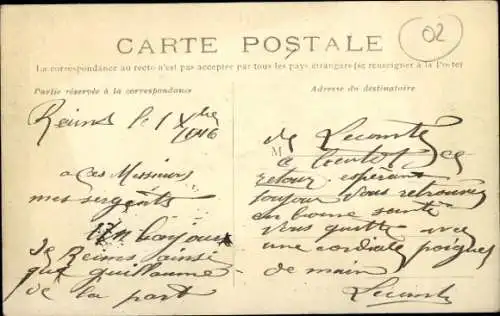 02
CARTE POSTALE
La correspondance au recto n'est pas acceptée par tous les pays étrangers (se renseigner à la Poste)
Partie réservée à la correspondance
Adresse du destinataire
Reims le 1 Xbre
1916
a ces Messieurs
mes sergents
un bonjour
de Reims ainsi
que guillaume
de la part
de Lecomte
M
a
retour espérant
toujour vous retrouver
en bonne santé
vous quitte avec
une cordiale poignee
de main
Lecomte